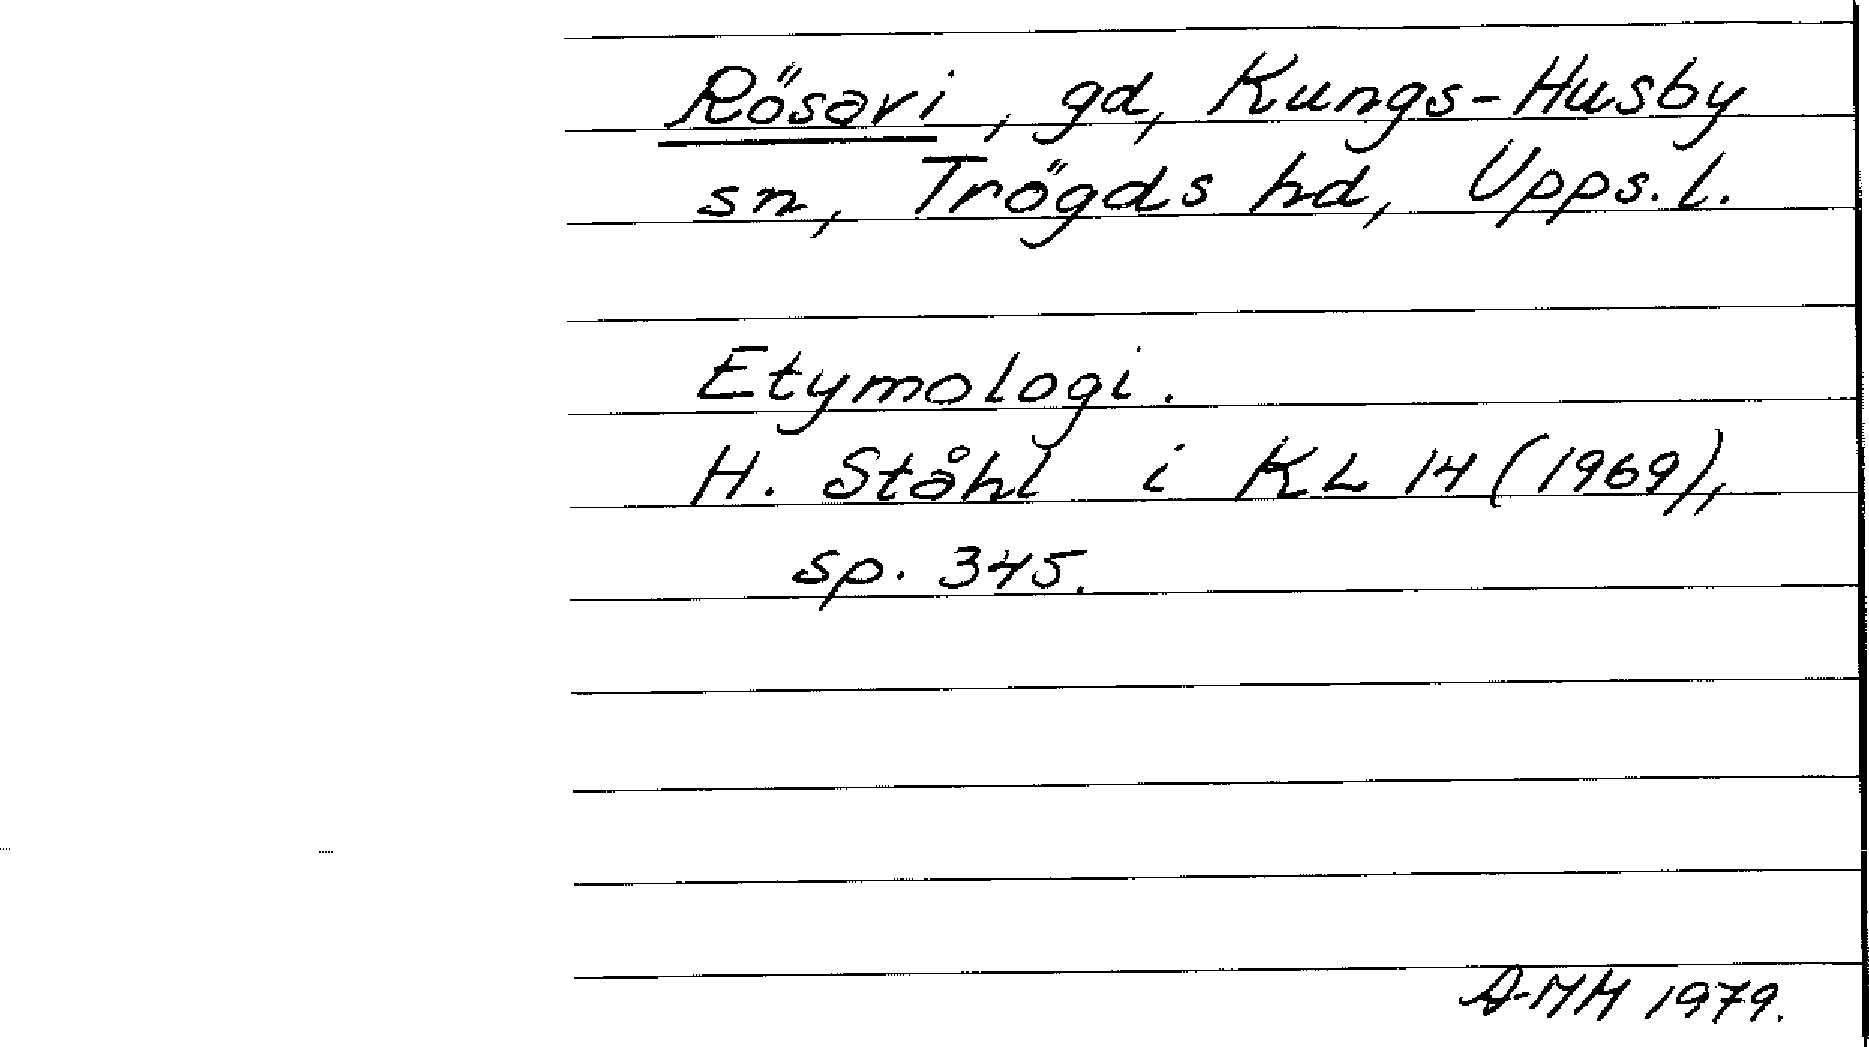 Rösavi, gd, Kungs-Husby
sn, Trögds hd, Upps. l.
Etymologi.
H. Ståhl i KL 14 (1969),
sp. 345.
A-MM 1979.